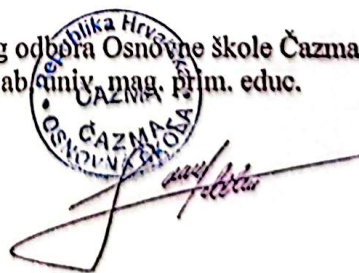 g odbora Osnovne škole Čazma
ab, univ. mag. prim. educ.
Republika Hrvatska
ČAZMA
ČAZMA
OSNOVNA ŠKOLA